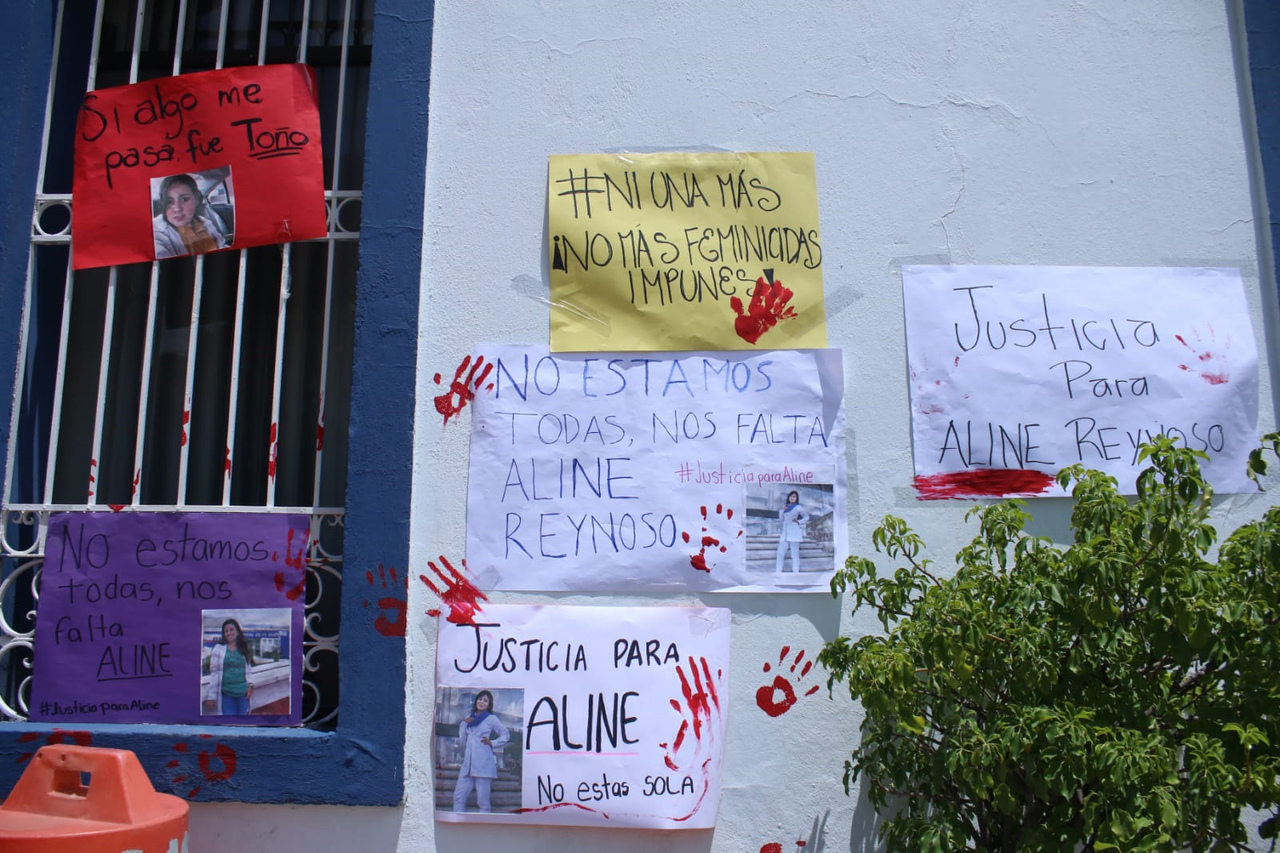 Si algo me
pasa, fue Toño
#NI UNA MÁS
¡NO MÁS FEMINICIDAS
IMPUNES!
NO ESTAMOS
TODAS, NOS FALTA
ALINE
#JusticiaparaAline
REYNOSO
Justicia
Para
ALINE REYNOSO
No estamos
todas, nos
falta
ALINE
#JusticiaparaAline
JUSTICIA PARA
ALINE
No estas SOLA